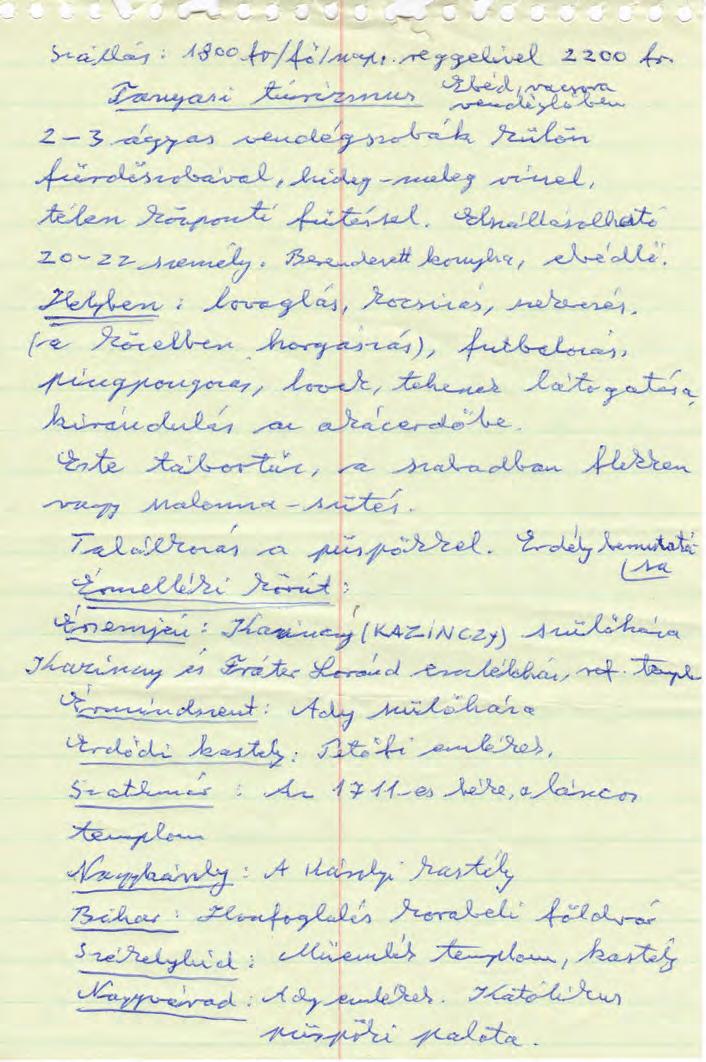 Szállás: 1800 ft/fő/nap, reggelivel 2200 ft.
Tanyasi túrizmus Ebéd, vacsora
vendéglőben
2-3 ágyas vendégszobák külön
fürdőszobával, hideg-meleg vízzel,
télen központi fűtéssel. Elszállásolható
20-22 személy. Berendezett konyha, ebédlő.
Helyben: lovaglás, kocsizás, szekerezés,
(a közelben horgászás), futbalozás,
pingpongozás, lovak, tehenek látogatása,
kirándulás az akácerdőbe.
Este tábortűz, a szabadban flekken
vagy szalonna-sütés.
Találkozás a püspökkel. Erdély bemutatá
sa
Érmelléki körút:
Érsemjén: Kazinczy (KAZINCZY) szülőháza
Kazinczy és Fráter Loránd emlékház, ref. templ
Érmindszent: Ady szülőháza
Erdődi kastély: Petőfi emlékek,
Szatmár: Az 1711-es béke, a láncos
templom
Nagykároly: A Károlyi kastély
Bihar: Honfoglalás korabeli földvár
Székelyhíd: Műemlék templom, kastély
Nagyvárad: Ady emlékek. Katólikus
püspöki palota.